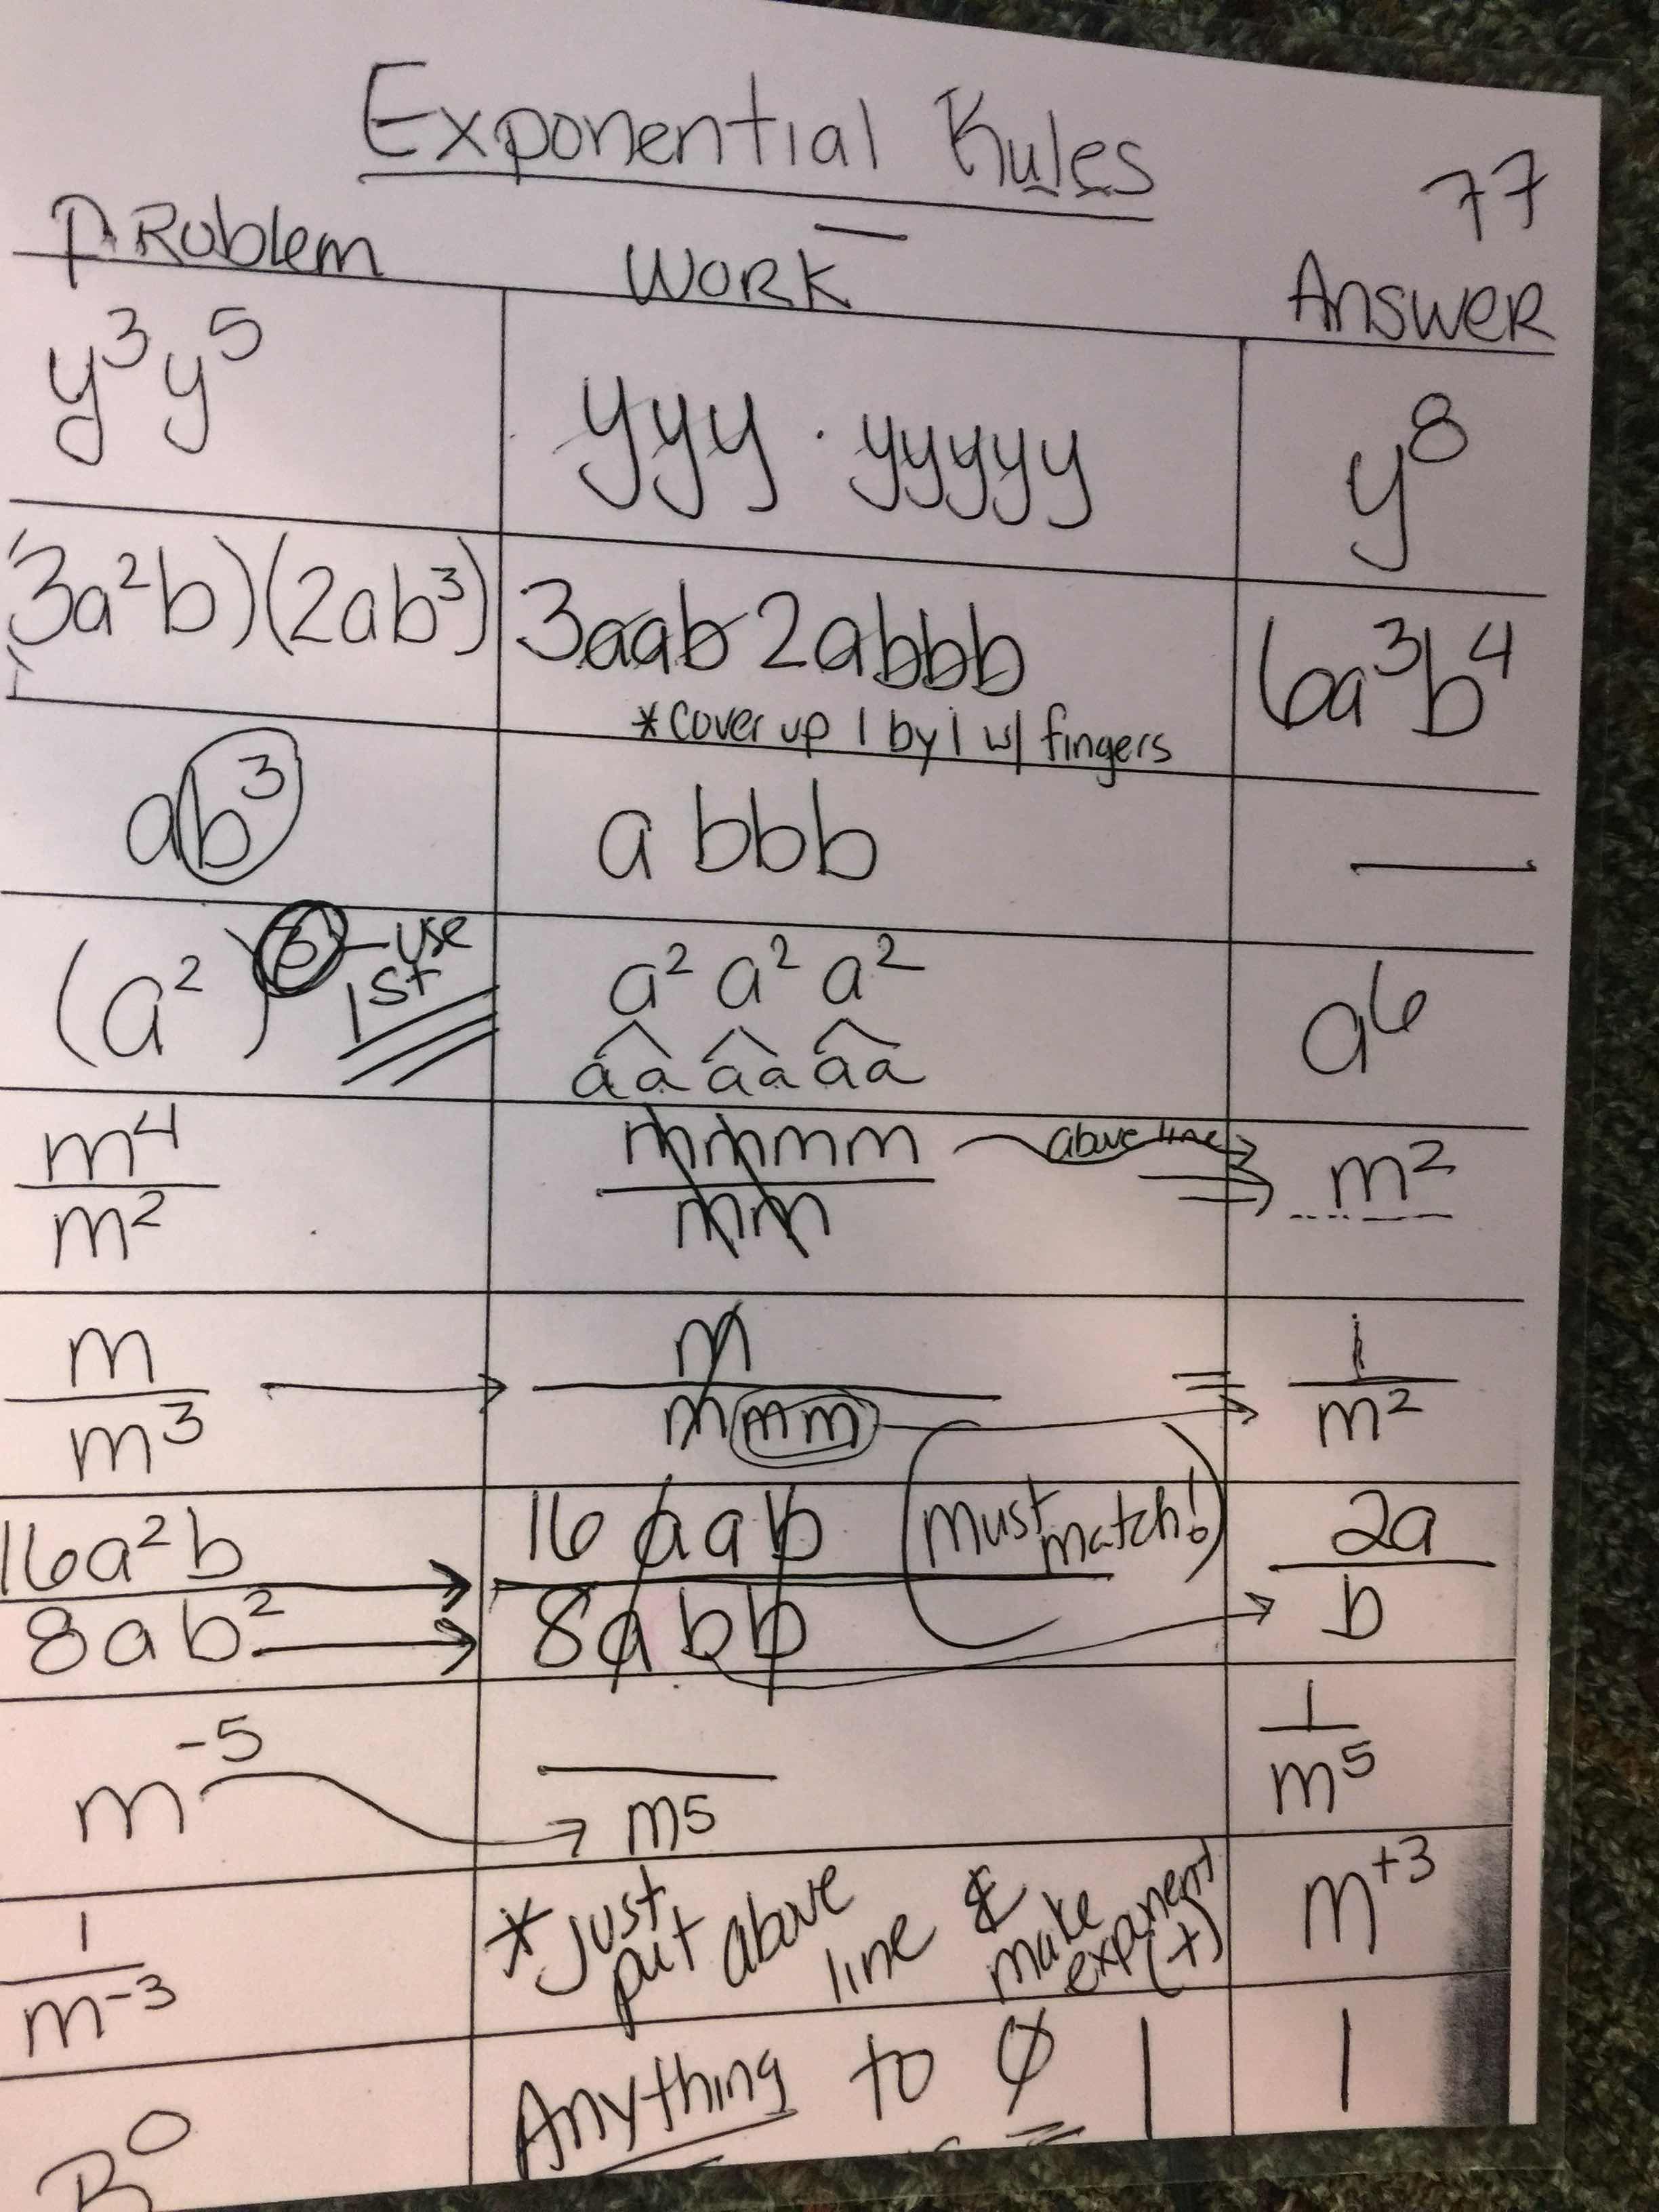 Exponential Rules
77
Problem Work Answer
y³y⁵ yyy · yyyyy y⁸
3a²b)(2ab³) 3aab 2abbb 6a³b⁴
*cover up 1 by 1 w/ fingers
ab³ a bbb —
(a²)³ use 1st a² a² a² a⁶
aa aa aa
m⁴ mmmm above line m²
m² mm
m m 1
m³ mmm m²
16a²b 16 aab must match! 2a
8ab² 8abb b
m⁻⁵ 1
m5 m⁵
1 *just put above line & make exponent (+) m⁺³
m⁻³
B⁰ Anything to Ø 1 1